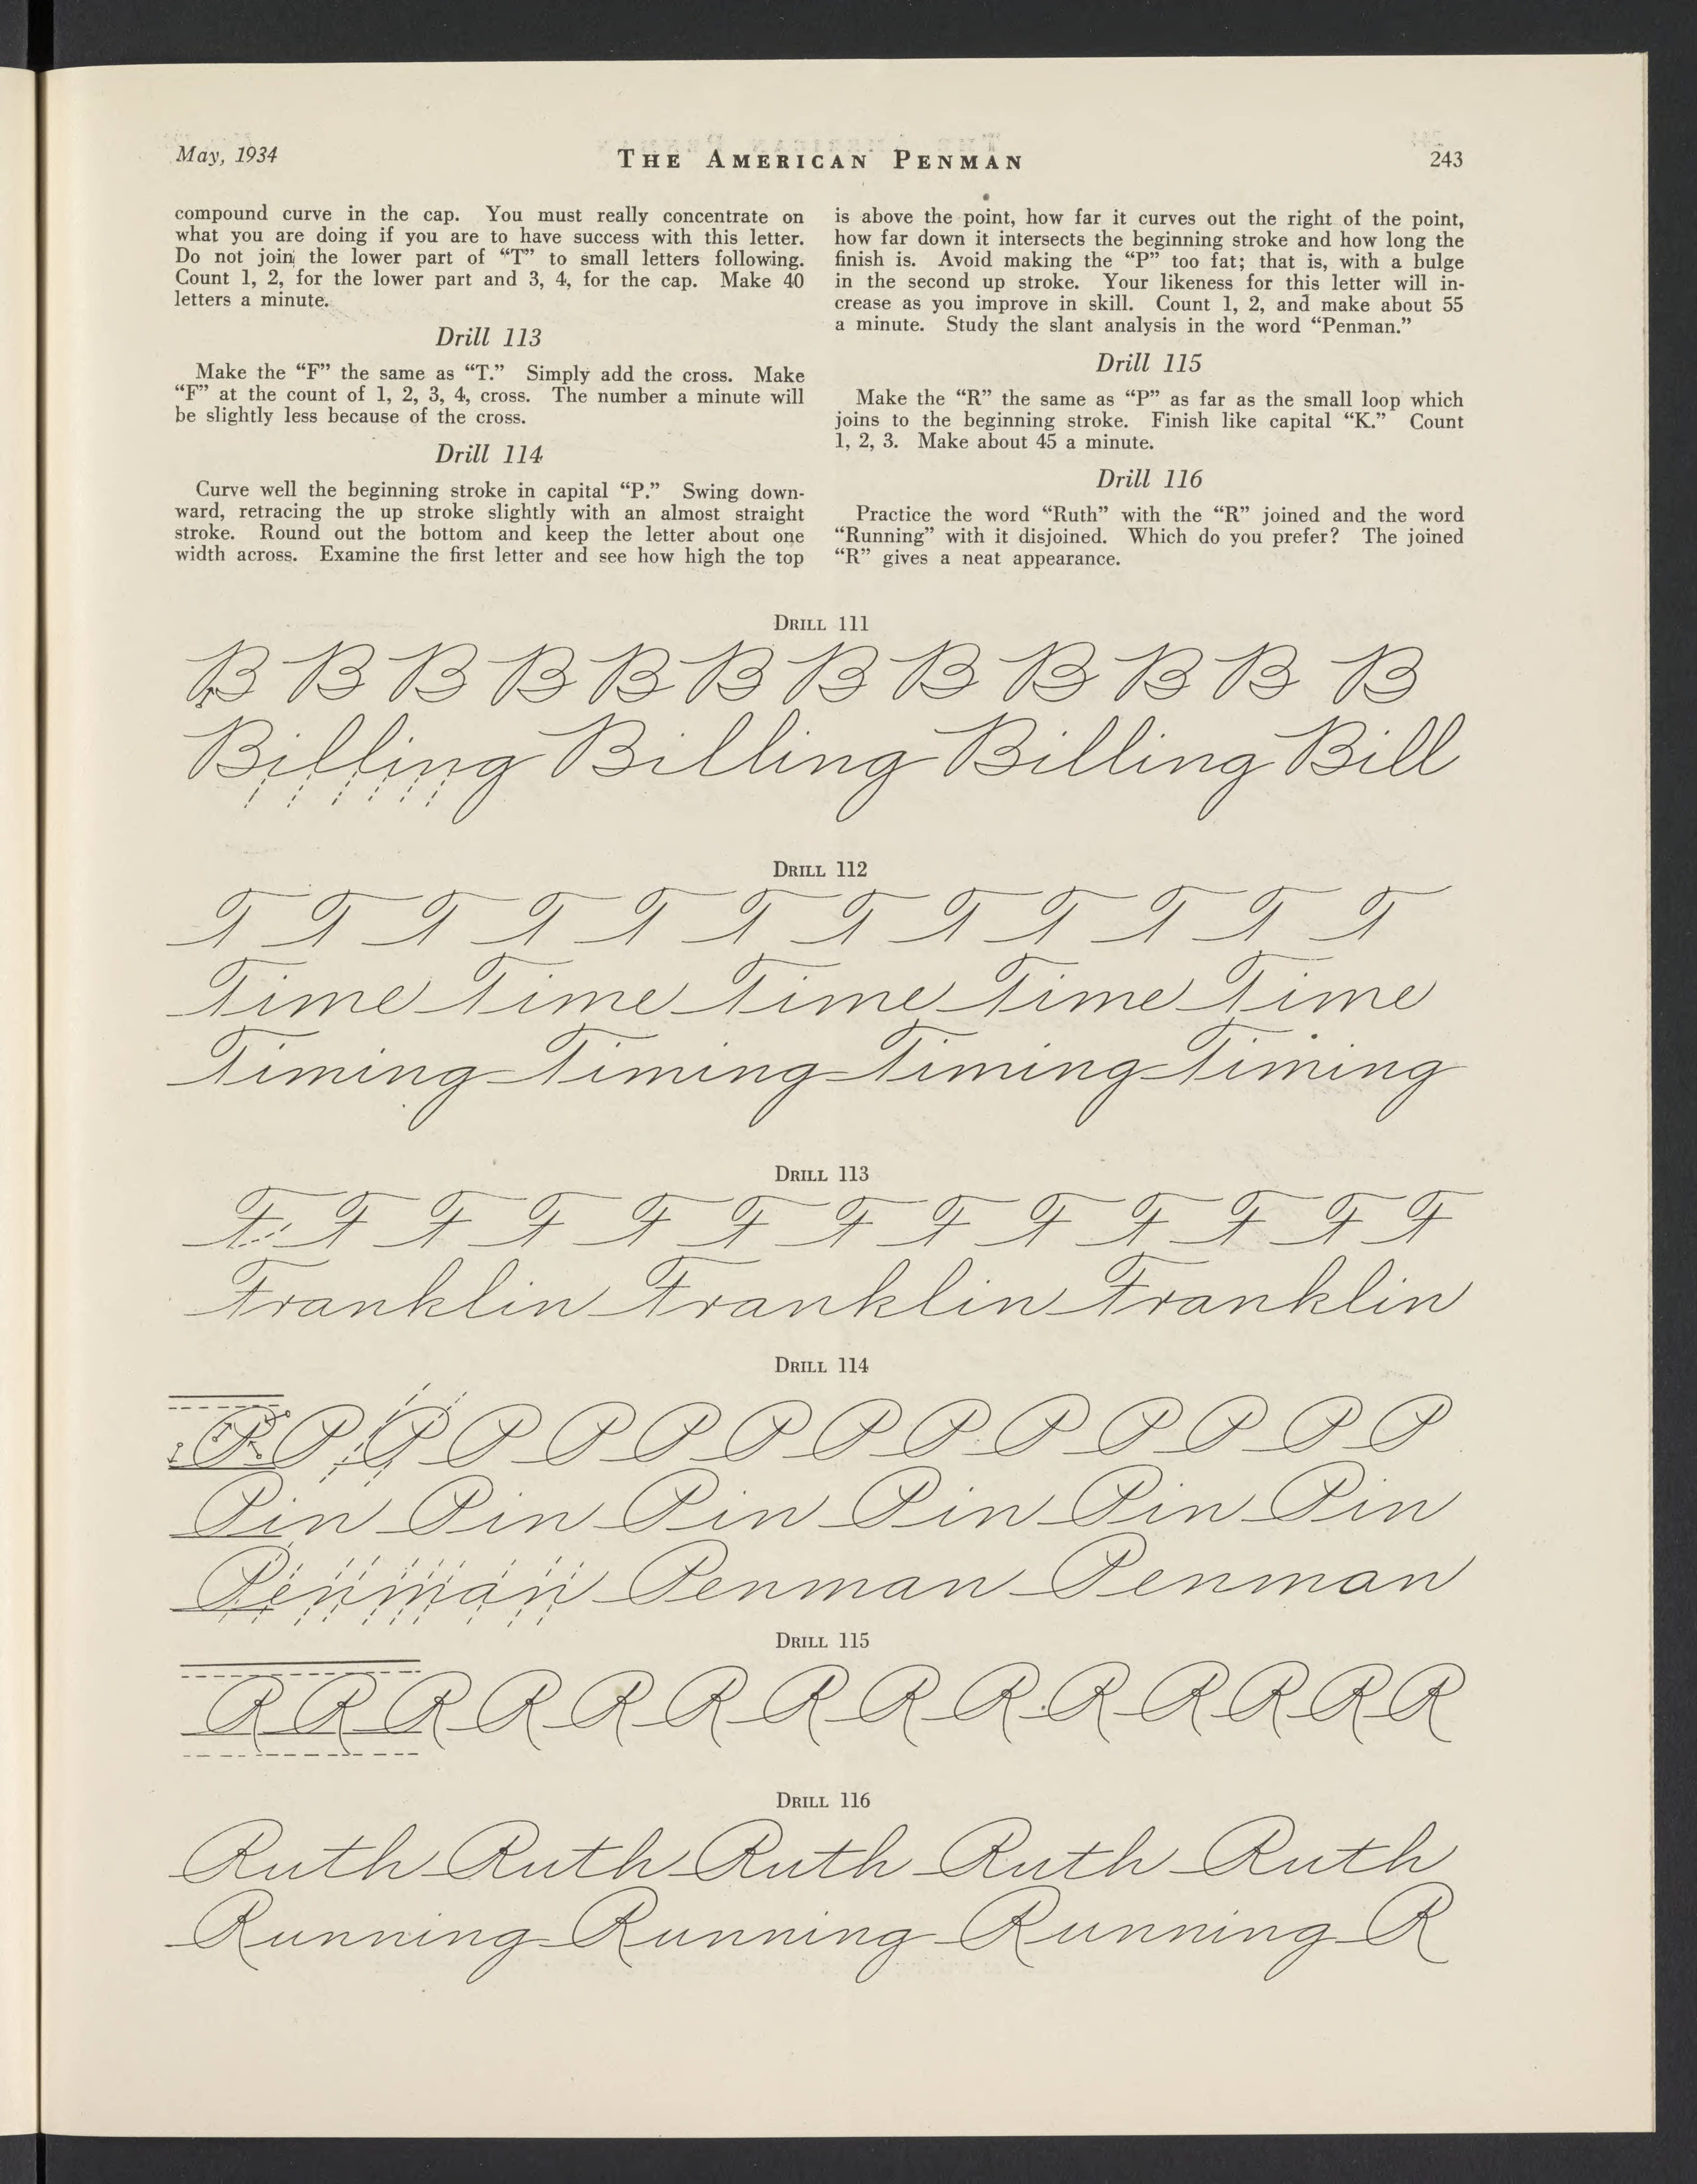 May, 1934
THE AMERICAN PENMAN
243
compound curve in the cap. You must really concentrate on
what you are doing if you are to have success with this letter.
Do not join the lower part of “T” to small letters following.
Count 1, 2, for the lower part and 3, 4, for the cap. Make 40
letters a minute.
Drill 113
Make the “F” the same as “T.” Simply add the cross. Make
“F” at the count of 1, 2, 3, 4, cross. The number a minute will
be slightly less because of the cross.
Drill 114
Curve well the beginning stroke in capital “P.” Swing down-
ward, retracing the up stroke slightly with an almost straight
stroke. Round out the bottom and keep the letter about one
width across. Examine the first letter and see how high the top
is above the point, how far it curves out the right of the point,
how far down it intersects the beginning stroke and how long the
finish is. Avoid making the “P” too fat; that is, with a bulge
in the second up stroke. Your likeness for this letter will in-
crease as you improve in skill. Count 1, 2, and make about 55
a minute. Study the slant analysis in the word “Penman.”
Drill 115
Make the “R” the same as “P” as far as the small loop which
joins to the beginning stroke. Finish like capital “K.” Count
1, 2, 3. Make about 45 a minute.
Drill 116
Practice the word “Ruth” with the “R” joined and the word
“Running” with it disjoined. Which do you prefer? The joined
“R” gives a neat appearance.
DRILL 111
B B B B B B B B B B B B
Billing Billing Billing Bill
DRILL 112
T T T T T T T T T T T T
Time Time Time Time Time
Timing Timing Timing Timing
DRILL 113
F F F F F F F F F F F F F
Franklin Franklin Franklin
DRILL 114
P P P P P P P P P P P P P P
Pin Pin Pin Pin Pin Pin
Penman Penman Penman
DRILL 115
R R R R R R R R R R R R R R
DRILL 116
Ruth Ruth Ruth Ruth Ruth
Running Running Running R